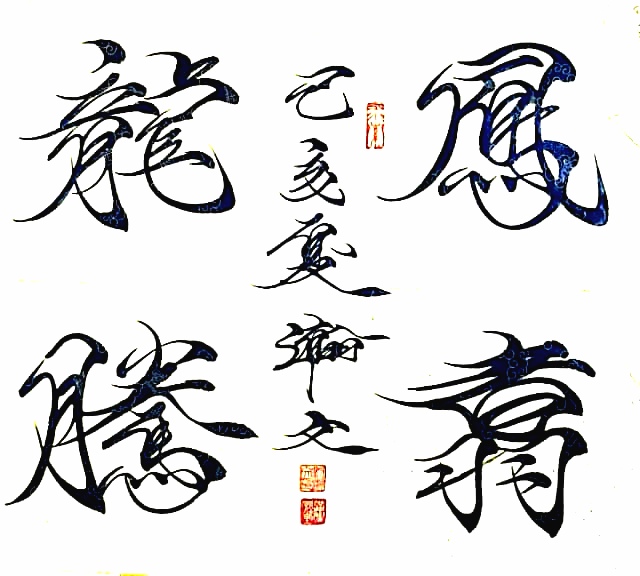 鳳翥
己亥夏瀚文
龍騰